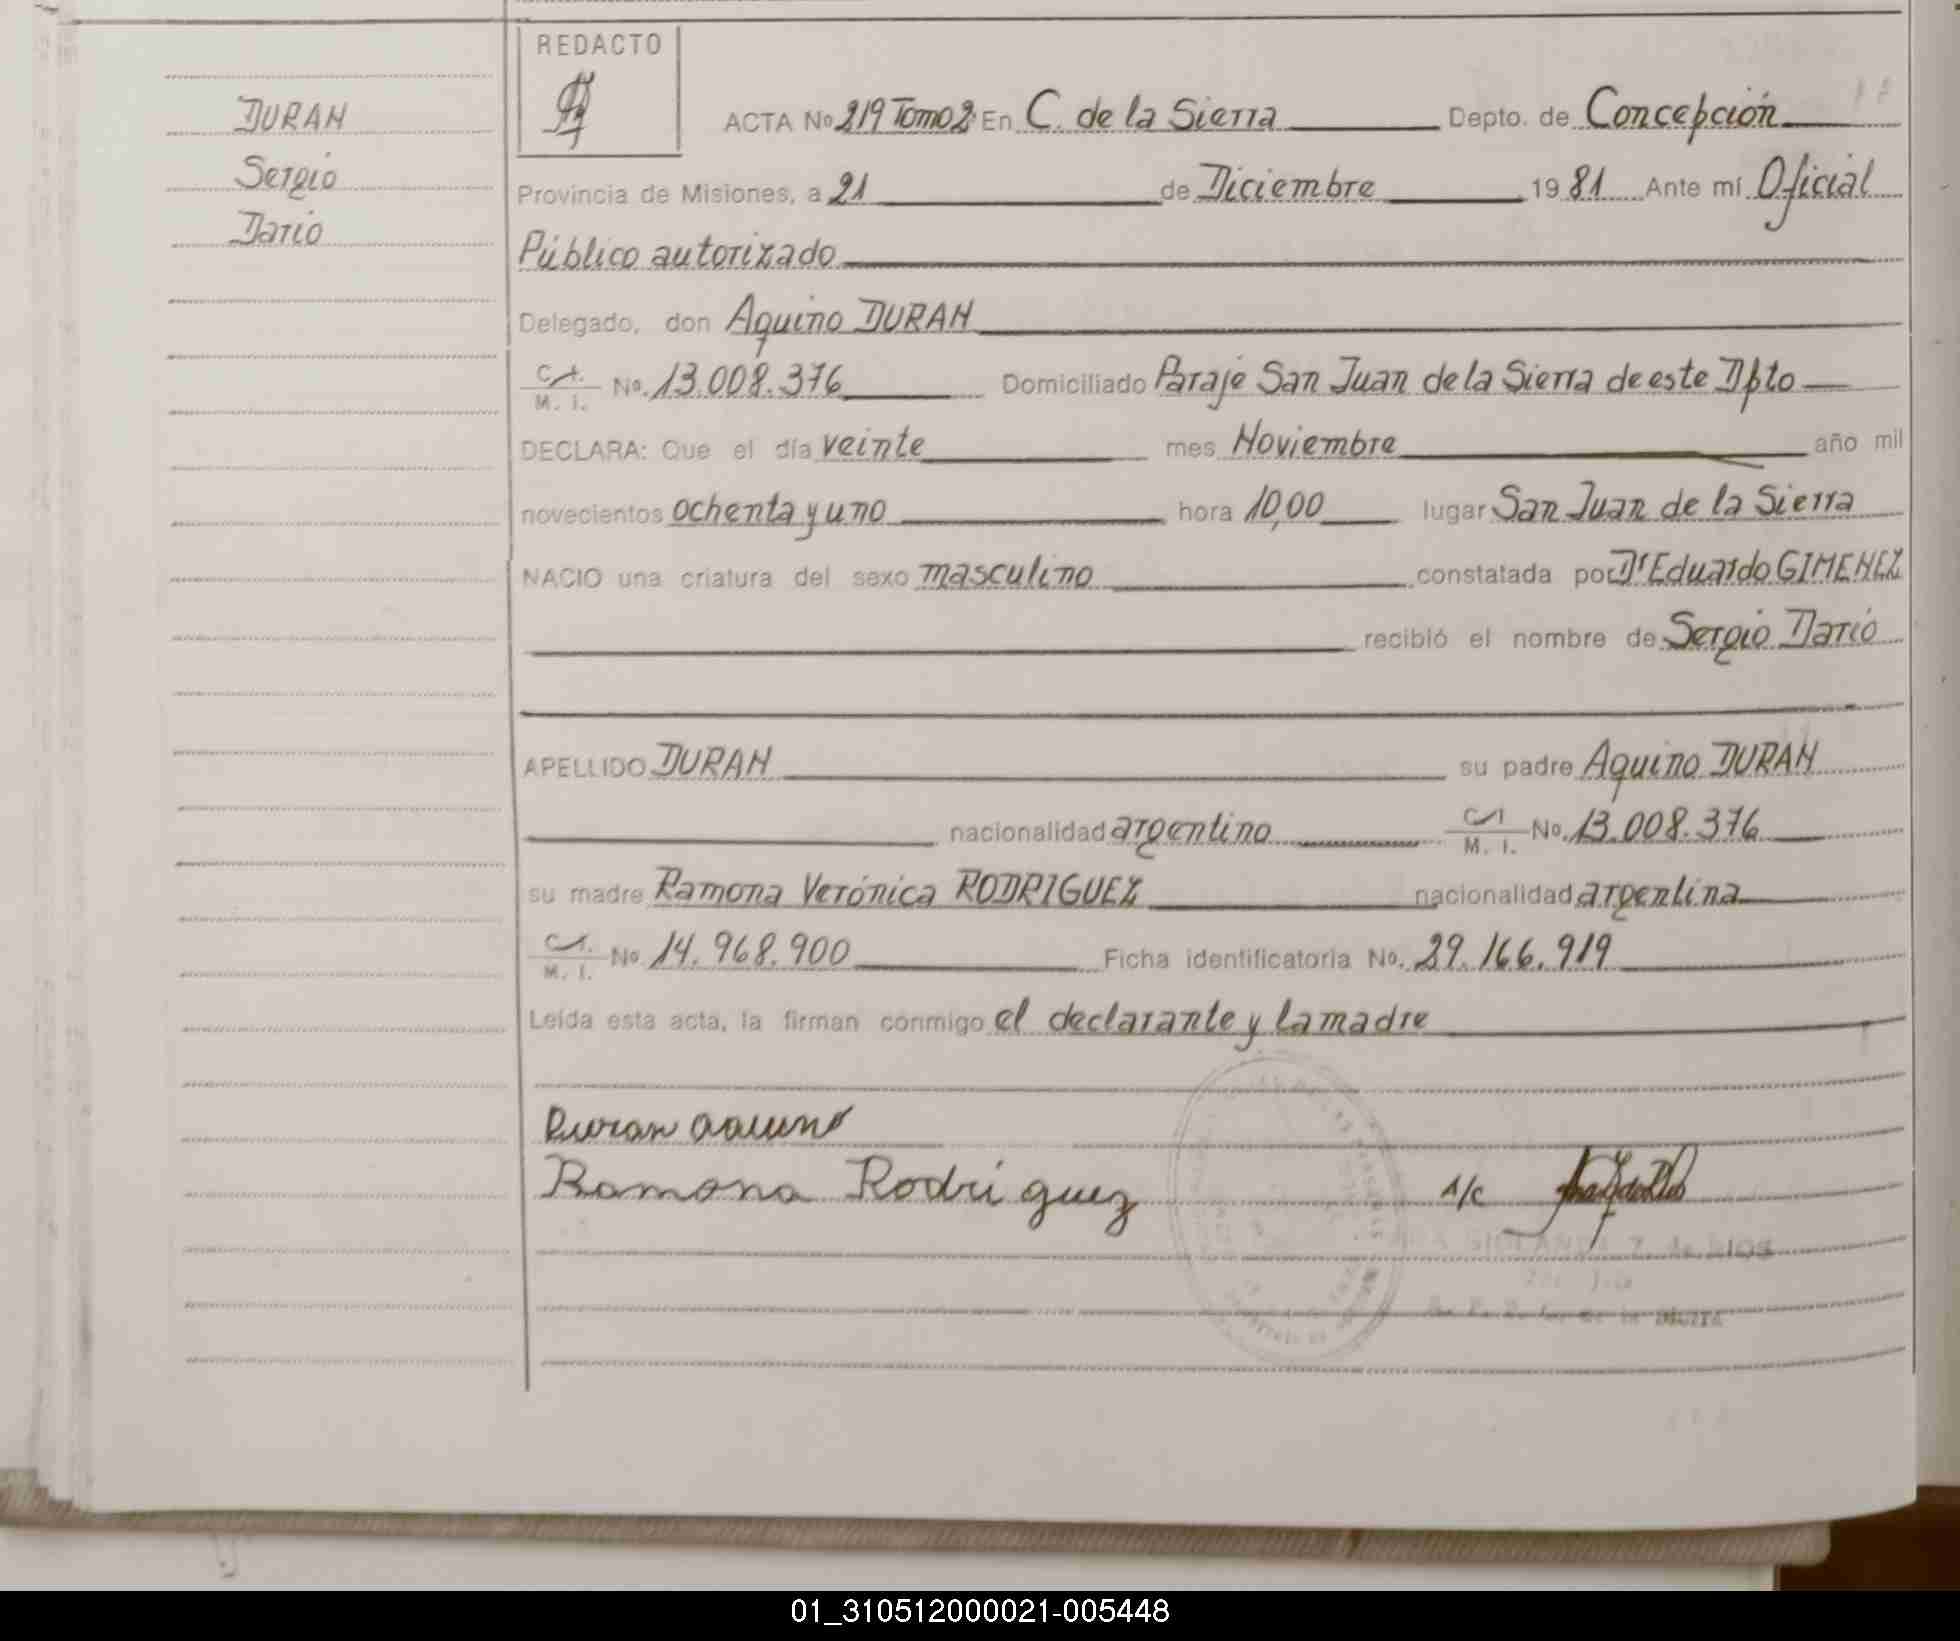 REDACTO
DURAN
Sergio
Darío
ACTA No 219 Tomo 2 En C. de la Sierra Depto. de Concepción
Provincia de Misiones, a 21 de Diciembre 19 81 Ante mí Oficial
Público autorizado
Delegado, don Aquino DURAN
C. I. M. I. No. 13.008.376 Domiciliado Paraje San Juan de la Sierra de este Dpto
DECLARA: Que el día veinte mes Noviembre año mil
novecientos ochenta y uno hora 10,00 lugar San Juan de la Sierra
NACIO una criatura del sexo masculino constatada por Dr Eduardo GIMENEZ
recibió el nombre de Sergio Darío
APELLIDO DURAN su padre Aquino DURAN
nacionalidad argentino C. I. M. I. No. 13.008.376
su madre Ramona Verónica RODRIGUEZ nacionalidad argentina
C. I. M. I. No 14.968.900 Ficha identificatoria No. 29.166.919
Leída esta acta, la firman conmigo el declarante y la madre
Duran
Ramona Rodriguez A/C
de RIOS
de la Sierra
01_310512000021-005448